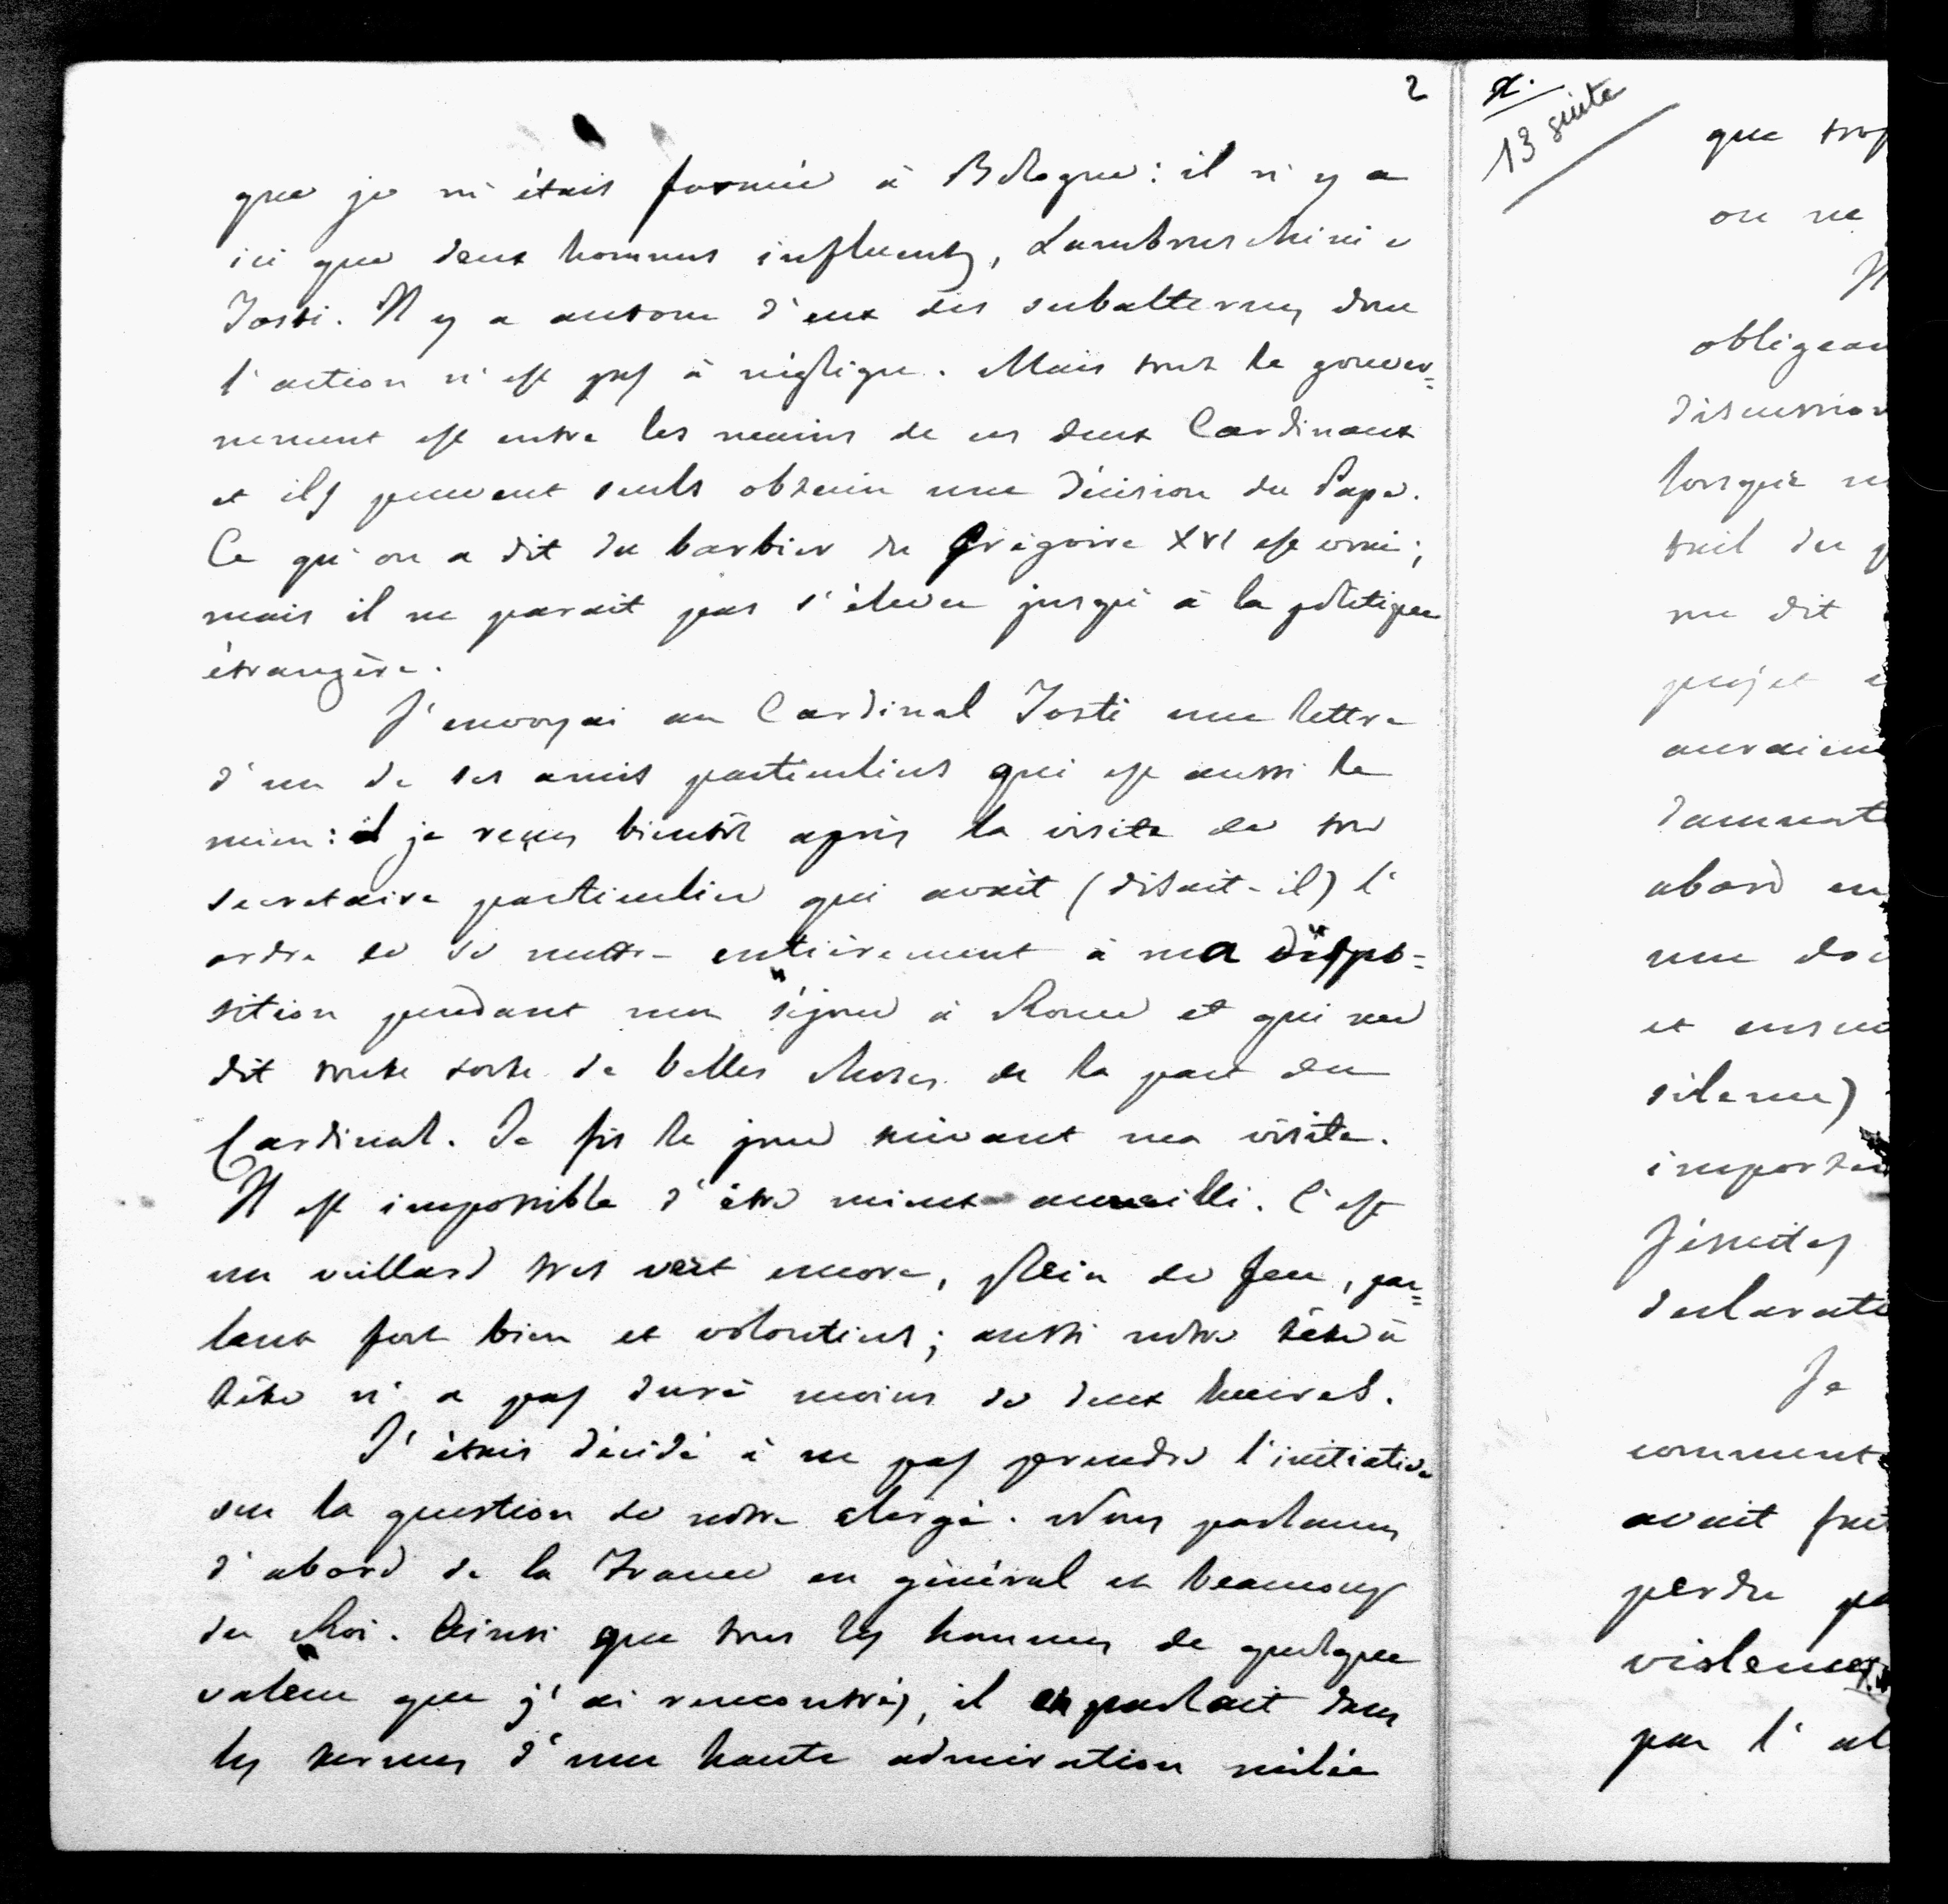 2
que je m'étais formée à Bologne : il n'y a
ici que deux hommes influents, Lambruschini e
Tosti. Il y a autour d'eux des subalternes dont
l'action n'est pas à négliger. Mais tout le gouver=
nement est entre les mains de ces deux Cardinaux
et ils peuvent seuls obtenir une décision du Pape.
Ce qu'on a dit du barbier de Grégoire XVI est vrai ;
mais il ne parait pas s'élever jusqu'à la politique
étrangère.
J'envoyai au Cardinal Tosti une lettre
d'un de ses amis particuliers qui est aussi le
mien : je reçus bientôt après la visite de son
secretaire particulier qui avait (disait-il) l'
ordre de se mettre entièrement à ma dispo=
sition pendant mon séjour à Rome et qui me
dit toute sorte de belles choses de la part du
Cardinal. Je fis le jour suivant ma visite.
Il est impossible d'être mieux accueilli. C'est
un vieillard très vert encore, plein de feu, par=
lant fort bien et volontiers ; aussi notre tête à
tête n'a pas duré moins de deux heures.
J'étais décidé à ne pas prendre l'initiative
sur la question de notre clergé. Nous parlames
d'abord de la France en général et beaucoup
du Roi. Ainsi que tous les hommes de quelque
valeur que j'ai rencontrés, il en parlait dans
les termes d'une haute admiration mêlée
13 suite
que trop
on ne
Il
obligean
discussion
lorsque
tail du
me dit
projet
auraien
damnat
abord en
une doc
et ensu
silence)
importan
Jésuites
declarati
Je
comment
avait fait
perdre pa
violences
par l'al